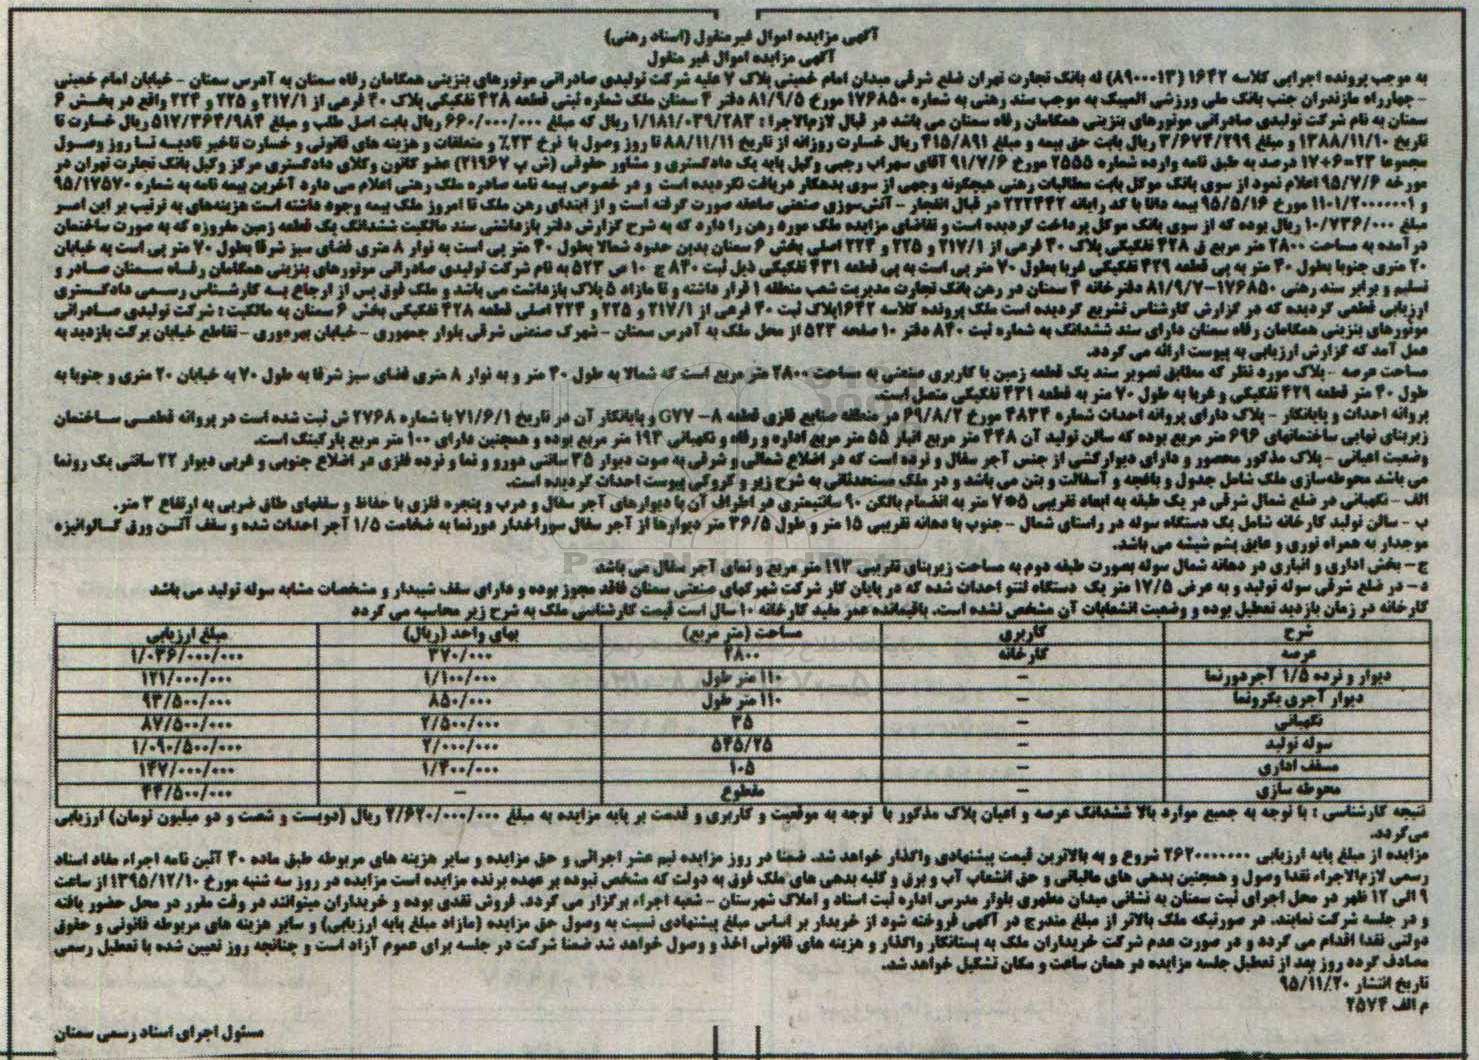 آگهی مزایده اموال غیرمنقول (اسناد رهنی)
آگهی مزایده اموال غیر منقول
به موجب پرونده اجرایی کلاسه ۱۶۴۲ (۸۹۰۰۰۱۳) له بانک تجارت تهران ضلع شرقی میدان امام خمینی پلاک ۷ علیه شرکت تولیدی صادراتی موتورهای بنزینی همگامان رفاه سمنان به آدرس سمنان - خیابان امام خمینی
- چهارراه مازندران جنب بانک ملی ورزشی المپیک به موجب سند رهنی به شماره ۱۷۶۸۵۰ مورخ ۸۱/۹/۵ دفتر ۴ سمنان ملک شماره ثبتی قطعه ۴۲۸ تفکیکی پلاک ۴۰ فرعی از ۲۱۷/۱ و ۲۲۵ و ۲۲۴ واقع در بخش ۶
سمنان به نام شرکت تولیدی صادراتی موتورهای بنزینی همگامان رفاه سمنان می باشد در قبال لازم‌الاجرا : ۱/۱۸۱/۰۳۹/۲۸۳ ریال که مبلغ ۶۶۰/۰۰۰/۰۰۰ ریال بابت اصل طلب و مبلغ ۵۱۷/۳۶۴/۹۸۴ ریال خسارت تا
تاریخ ۱۳۸۸/۱۱/۱۰ و مبلغ ۳/۶۷۴/۲۹۹ ریال بابت حق بیمه و مبلغ ۴۱۵/۸۹۱ ریال خسارت روزانه از تاریخ ۸۸/۱۱/۱۱ تا روز وصول با نرخ ۲۳٪ و متعلقات و هزینه های قانونی و خسارت تاخیر تادیه تا روز وصول
مجموعا ۲۳=۶+۱۷ درصد به طبق نامه وارده شماره ۲۵۵۵ مورخ ۹۱/۷/۶ آقای سهراب رجبی وکیل پایه یک دادگستری و مشاور حقوقی (ش پ ۲۱۹۶۷) عضو کانون وکلای دادگستری مرکز وکیل بانک تجارت تهران در
مورخه ۹۵/۷/۶ اعلام نمود از سوی بانک موکل بابت مطالبات رهنی هیچگونه وجهی از سوی بدهکار دریافت نگردیده است و در خصوص بیمه نامه صادره ملک رهنی اعلام می دارد آخرین بیمه نامه به شماره ۹۵/۱۲۵۷۰
و ۱۱۰۱/۲۰۰۰۰۰۰۱ مورخ ۹۵/۵/۱۶ بیمه دانا با کد رایانه ۲۲۲۴۴۲ در قبال انفجار - آتش‌سوزی صنعتی صاعقه صورت گرفته است و از ابتدای رهن ملک تا امروز ملک بیمه وجود داشته است هزینه‌های به ترتیب بر این امر
مبلغ ۱۰/۷۳۶/۰۰۰ ریال بوده که از سوی بانک موکل پرداخت گردیده است و تقاضای مزایده ملک مورد رهن را دارد که به شرح گزارش دفتر بازداشتی سند مالکیت ششدانگ یک قطعه زمین مفروزه که به صورت ساختمان
درآمده به مساحت ۲۸۰۰ متر مربع ق ۴۲۸ تفکیکی پلاک ۴۰ فرعی از ۲۱۷/۱ و ۲۲۵ و ۲۲۴ اصلی بخش ۶ سمنان بدین حدود شمالا بطول ۴۰ متر پی است به نوار ۸ متری فضای سبز شرقا بطول ۷۰ متر پی است به خیابان
۲۰ متری جنوبا بطول ۴۰ متر به پی قطعه ۴۲۹ تفکیکی غربا بطول ۷۰ متر پی است به پی قطعه ۴۳۱ تفکیکی ذیل ثبت ۸۴۰ ج ۱۰ ص ۵۲۳ به نام شرکت تولیدی صادراتی موتورهای بنزینی همگامان رفاه سمنان صادر و
تسلیم و برابر سند رهنی ۱۷۶۸۵۰-۸۱/۹/۷ دفترخانه ۴ سمنان در رهن بانک تجارت مدیریت شعب منطقه ۱ قرار داشته و تا مازاد ۵ پلاک بازداشت می باشد و ملک فوق پس از ارجاع به کارشناس رسمی دادگستری
ارزیابی قطعی گردیده که در گزارش کارشناس تشریح گردیده است ملک پرونده کلاسه ۱۶۴۲پلاک ثبت ۴۰ فرعی از ۲۱۷/۱ و ۲۲۵ و ۲۲۴ اصلی قطعه ۴۲۸ تفکیکی بخش ۶ سمنان به مالکیت : شرکت تولیدی صادراتی
موتورهای بنزینی همگامان رفاه سمنان دارای سند ششدانگ به شماره ثبت ۸۴۰ دفتر ۱۰ صفحه ۵۲۳ از محل ملک به آدرس سمنان - شهرک صنعتی شرقی بلوار جمهوری - خیابان بهره‌وری - تقاطع خیابان برکت بازدید به
عمل آمد که گزارش ارزیابی به پیوست ارائه می گردد.
مساحت عرصه - پلاک مورد نظر که مطابق تصویر سند یک قطعه زمین با کاربری صنعتی به مساحت ۲۸۰۰ متر مربع است که شمالا به طول ۴۰ متر و به نوار ۸ متری فضای سبز شرقا به طول ۷۰ به خیابان ۲۰ متری و جنوبا به
طول ۴۰ متر قطعه ۴۲۹ تفکیکی و غربا به طول ۷۰ متر به قطعه ۴۳۱ تفکیکی متصل است.
پروانه احداث و پایانکار - پلاک دارای پروانه احداث شماره ۴۸۳۴ مورخ ۶۹/۸/۲ در منطقه صنایع فلزی قطعه ۸- G۷۷ و پایانکار آن در تاریخ ۷۱/۶/۱ با شماره ۲۷۶۸ ش ثبت شده است در پروانه قطعی ساختمان
زیربنای نهایی ساختمانهای ۶۹۶ متر مربع بوده که سالن تولید آن ۴۴۸ متر مربع انبار ۵۵ متر مربع اداره و رفاه و نگهبانی ۱۹۳ متر مربع بوده و همچنین دارای ۱۰۰ متر مربع پارکینگ است.
وضعیت اعیانی - پلاک مذکور محصور و دارای دیوارکشی از جنس آجر سفال و نرده است که در اضلاع شمالی و شرقی به صوت دیوار ۳۵ سانتی دورو و نما و نرده فلزی در اضلاع جنوبی و غربی دیوار ۲۲ سانتی یک رونما
می باشد محوطه‌سازی ملک شامل جدول و باغچه و آسفالت و بتن می باشد و در ملک مستحدثاتی به شرح زیر و کروکی پیوست احداث گردیده است.
الف - نگهبانی در ضلع شمال شرقی در یک طبقه به ابعاد تقریبی ۵*۷ متر به انضمام بالکن ۹۰ سانتیمتری در اطراف آن با دیوارهای آجر سفال و درب و پنجره فلزی با حفاظ و سقفهای طاق ضربی به ارتفاع ۳ متر.
ب - سالن تولید کارخانه شامل یک دستگاه سوله در راستای شمال - جنوب با دهانه تقریبی ۱۵ متر و طول ۳۶/۵ متر دیوارها از آجر سفال سوراخدار دورنما به ضخامت ۱/۵ آجر احداث شده و سقف آنسن ورق گالوانیزه
موجدار به همراه نوری و عایق پشم شیشه می باشد.
ج - بخش اداری و انباری در دهانه شمال سوله بصورت طبقه دوم به مساحت زیربنای تقریبی ۱۹۳ متر مربع و نمای آجر سفال می باشد
د - در ضلع شرقی سوله تولید و به عرض ۱۷/۵ متر یک دستگاه لنتو احداث شده که در پایان کار شرکت شهرکهای صنعتی سمنان فاقد مجوز بوده و دارای سقف شیبدار و مشخصات مشابه سوله تولید می باشد
کارخانه در زمان بازدید تعطیل بوده و وضعیت انشعابات آن مشخص نشده است. باقیمانده عمر مفید کارخانه ۱۰ سال است قیمت کارشناسی ملک به شرح زیر محاسبه می گردد
شرح کاربری مساحت (متر مربع) بهای واحد (ریال) مبلغ ارزیابی
عرصه کارخانه ۲۸۰۰ ۳۷۰/۰۰۰ ۱/۰۳۶/۰۰۰/۰۰۰
دیوار و نرده ۱/۵ آجردورنما - ۱۱۰ متر طول ۱/۱۰۰/۰۰۰ ۱۲۱/۰۰۰/۰۰۰
دیوار آجری یکرونما - ۱۱۰ متر طول ۸۵۰/۰۰۰ ۹۳/۵۰۰/۰۰۰
نگهبانی - ۳۵ ۲/۵۰۰/۰۰۰ ۸۷/۵۰۰/۰۰۰
سوله تولید - ۵۴۵/۲۵ ۲/۰۰۰/۰۰۰ ۱/۰۹۰/۵۰۰/۰۰۰
مسقف اداری - ۱۰۵ ۱/۴۰۰/۰۰۰ ۱۴۷/۰۰۰/۰۰۰
محوطه سازی - مقطوع - ۴۴/۵۰۰/۰۰۰
نتیجه کارشناسی : با توجه به جمیع موارد بالا ششدانگ عرصه و اعیان پلاک مذکور با توجه به موقعیت و کاربری و قدمت بر پایه مزایده به مبلغ ۲/۶۲۰/۰۰۰/۰۰۰ ریال (دویست و شصت و دو میلیون تومان) ارزیابی
می‌گردد.
مزایده از مبلغ پایه ارزیابی ۲۶۲۰۰۰۰۰۰۰ شروع و به بالاترین قیمت پیشنهادی واگذار خواهد شد. ضمنا در روز مزایده نیم عشر اجرائی و حق مزایده و سایر هزینه های مربوطه طبق ماده ۴۰ آئین نامه اجراء مفاد اسناد
رسمی لازم‌الاجراء نقدا وصول و همچنین بدهی های مالیاتی و حق انشعاب آب و برق و کلیه بدهی های ملک فوق به دولت که مشخص نبوده بر عهده برنده مزایده است مزایده در روز سه شنبه مورخ ۱۳۹۵/۱۲/۱۰ از ساعت
۹ الی ۱۲ ظهر در محل اجرای ثبت سمنان به نشانی میدان مطهری بلوار مدرس اداره ثبت اسناد و املاک شهرستان - شعبه اجراء برگزار می گردد. فروش نقدی بوده و خریداران میتوانند در وقت مقرر در محل حضور یافته
و در جلسه شرکت نمایند. در صورتیکه ملک بالاتر از مبلغ مندرج در آگهی فروخته شود از خریدار بر اساس مبلغ پیشنهادی نسبت به وصول حق مزایده (مازاد مبلغ پایه ارزیابی) و سایر هزینه های مربوطه قانونی و حقوق
دولتی نقدا اقدام می گردد و در صورت عدم شرکت خریداران ملک به بستانکار واگذار و هزینه های قانونی اخذ و وصول خواهد شد ضمنا شرکت در جلسه برای عموم آزاد است و چنانچه روز تعیین شده با تعطیل رسمی
مصادف گردد روز بعد از تعطیل جلسه مزایده در همان ساعت و مکان تشکیل خواهد شد.
تاریخ انتشار ۹۵/۱۱/۲۰
م الف ۲۵۷۴
مسئول اجرای اسناد رسمی سمنان